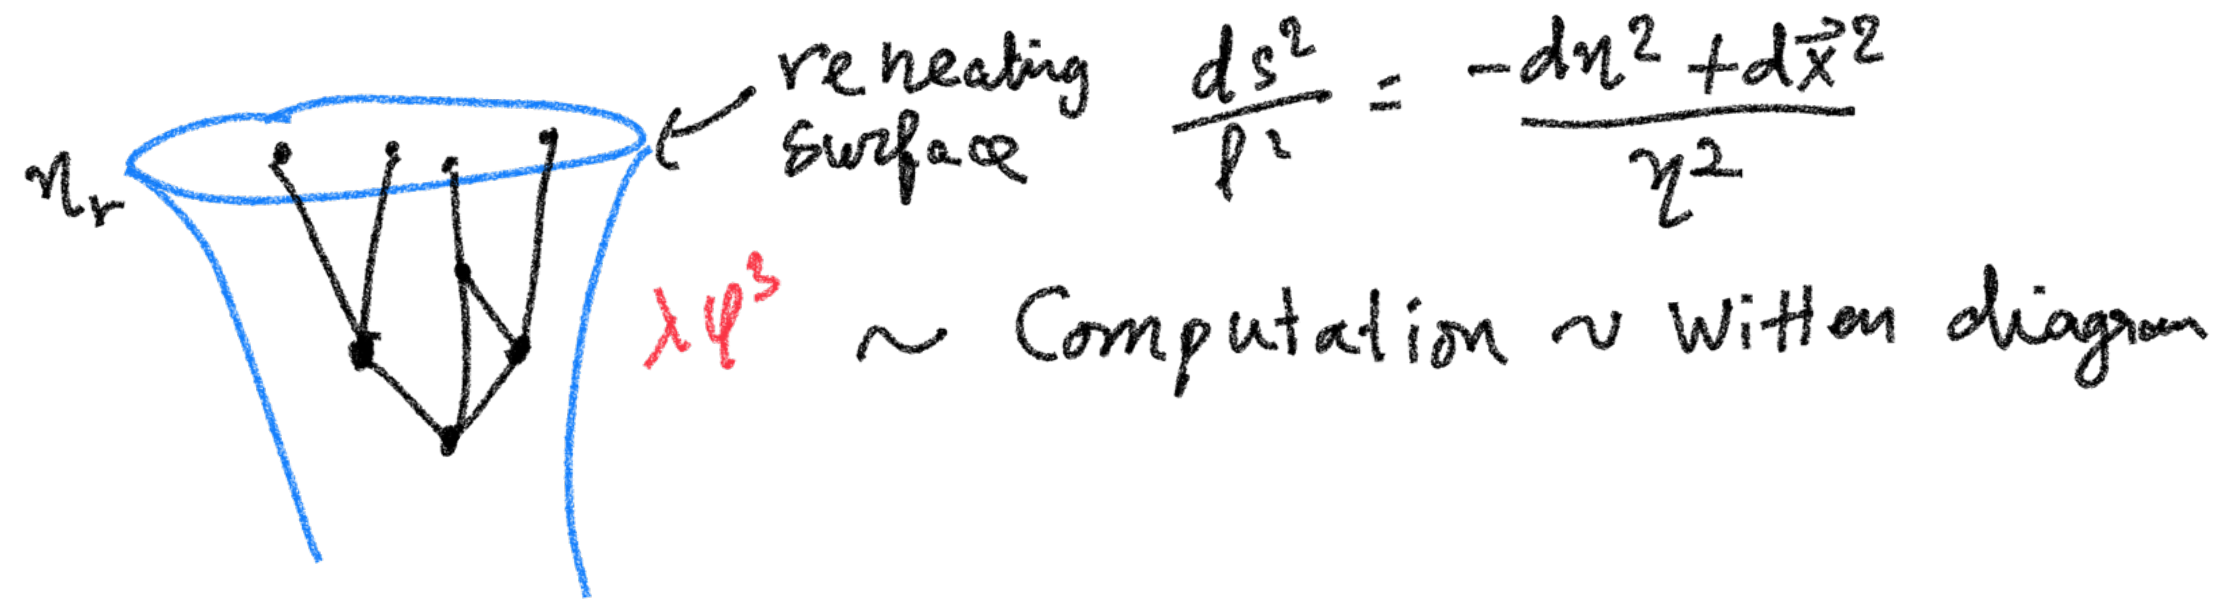 reheating
surface
ds²/ℓ² = (-dη² + dx⃗²)/η²
ηᵣ
λφ³ ~ Computation ~ Witten diagram